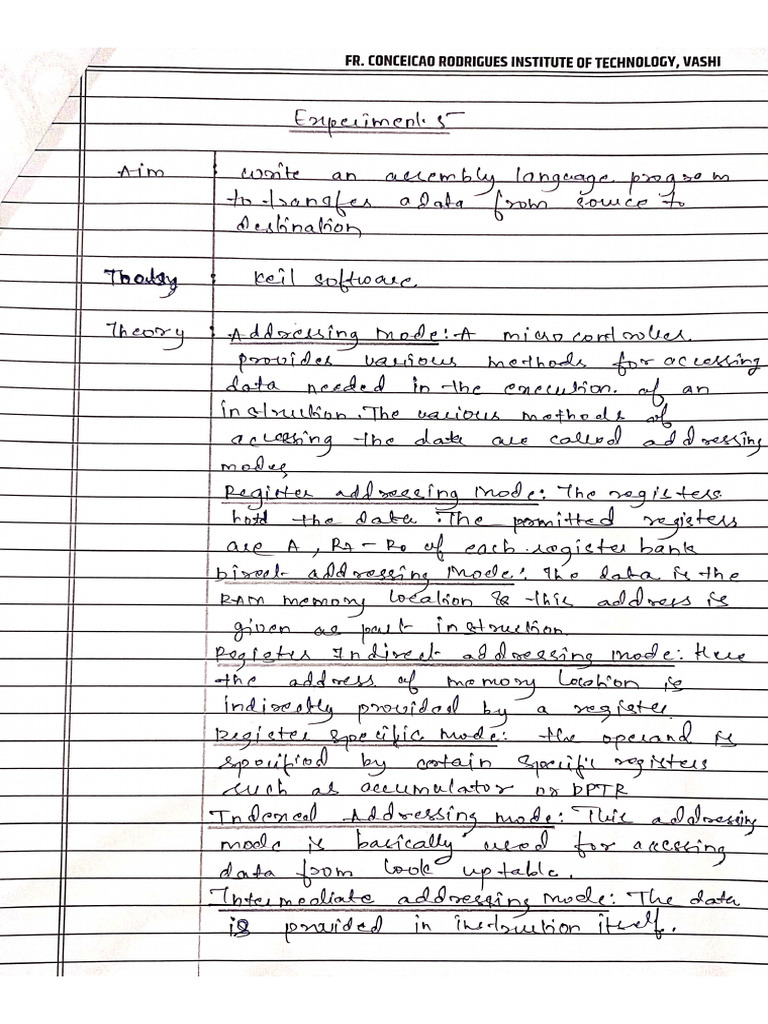 FR. CONCEICAO RODRIGUES INSTITUTE OF TECHNOLOGY, VASHI
Experiment 5
Aim : Write an assembly language program
to transfer a data from source to
destination
: Keil software.
Theory : Addressing mode : A microcontroller
provides various methods for accessing
data needed in the execution of an
instruction. The various methods of
accessing the data are called addressing
modes
Register addressing mode : The registers
hold the data. The permitted registers
are A, R7 - R0 of each register bank
Direct addressing mode : The data is the
RAM memory location & this address is
given as part instruction.
Register Indirect addressing mode : Here
the address of memory location is
indirectly provided by a register.
Register specific mode : the operand is
specified by certain specific registers
such as accumulator or DPTR
Indexed Addressing mode : This addressing
mode is basically used for accessing
data from look up table.
Intermediate addressing mode : The data
is provided in instruction itself.